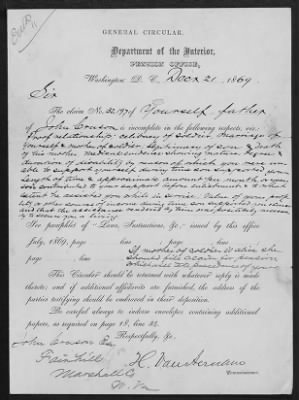 GENERAL CIRCULAR.
Department of the Interior,
PENSION OFFICE,
Washington, D. C., Decr 21, 1869
Sir
The claim No. of Yourself father
of John is incomplete in the following respects, viz:
Proof relationship of Soldier Marriage of
Yourself & mother of soldier legitimacy of son & death
of his mother Medical evidence nature degree &
duration of disability by reason of which you were un
able to support yourself during time son supported you
Length of time & approximate amount per month or year
son contributed to your support before enlistment & to what
extent he assisted you while in service. Value of your prop-
erty & other sources of income during time son supported you
and that the assistance rendered by him was
See pamphlet of "Laws, Instructions, &c.," issued by this office
July, 1869, page line page line
page line If mother of soldier is alive she
should file claim for pension
This Circular should be returned with whatever reply is made
thereto; and if additional affidavits are furnished, the address of the
parties testifying should be endorsed in their deposition.
Be careful always to indorse envelopes containing additional
papers, as requested on page 18, line 32.
Respectfully, &c.,
John Esq
H. Van Aernam
Commissioner.
Marshall Co
W. Va